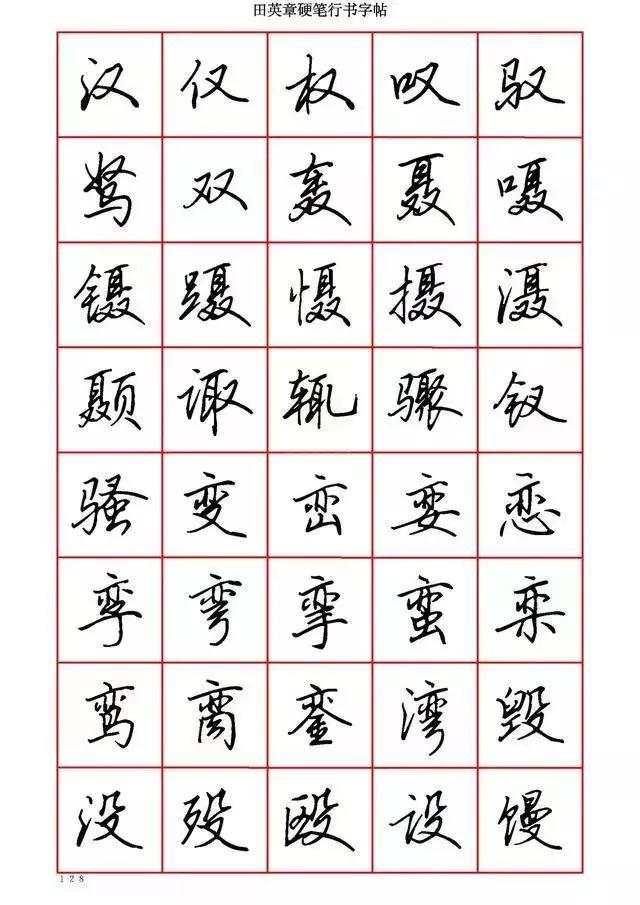 田英章硬笔行书字帖
汉 仅 权 叹 驭
驽 双 轰 聂 嗫
镊 蹑 慑 摄 滠
颞 诹 辄 骤 钗
骚 变 峦 娈 恋
孪 弯 挛 蛮 栾
鸾 脔 銮 湾 毁
没 殁 殴 设 馒
128